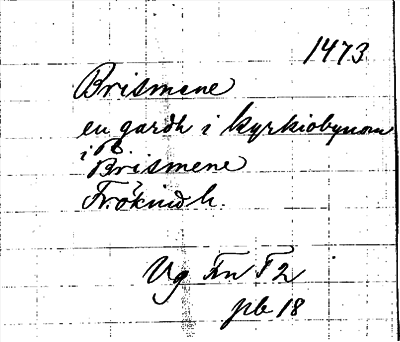 1473
Brismene
en gardh i kyrkiobynom
i B.
Brismene
Frökindh.
Vg Fn F2
pb 18